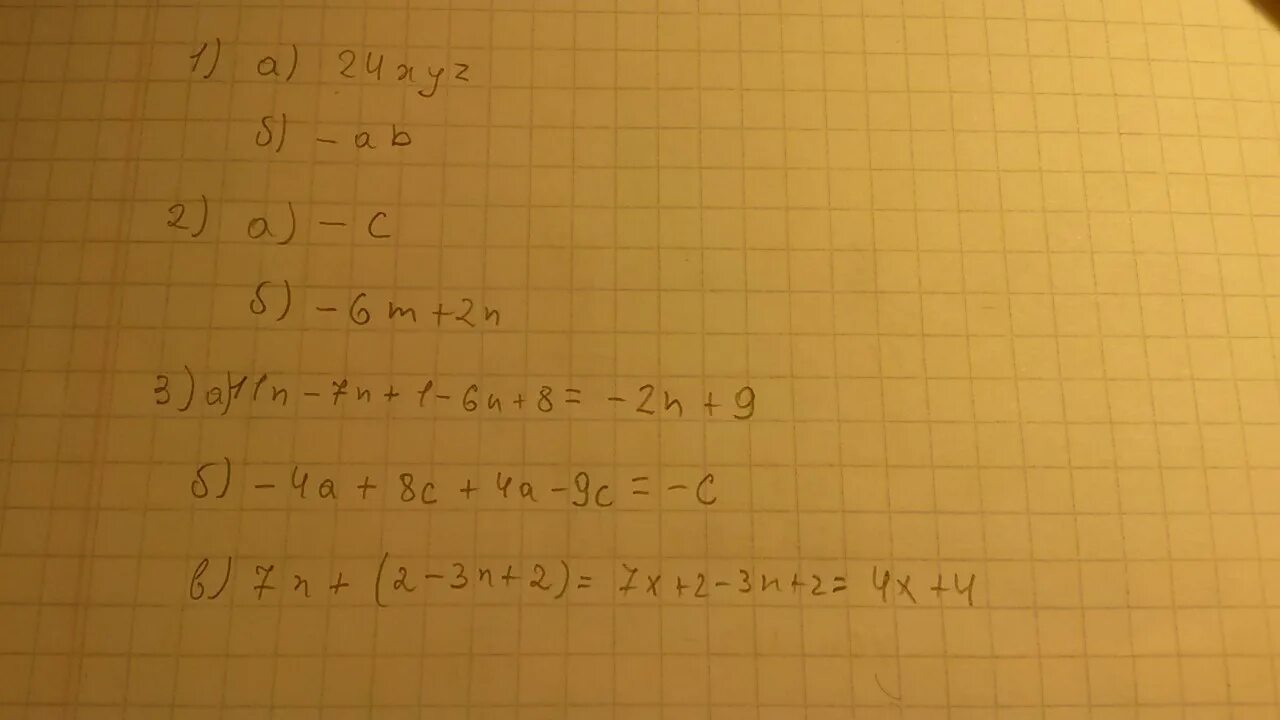 1) а) 24xyz
б) - ab
2) а) - c
б) - 6m + 2n
3) а) 11n - 7n + 1 - 6n + 8 = - 2n + 9
б) - 4a + 8c + 4a - 9c = - c
в) 7x + (2 - 3x + 2) = 7x + 2 - 3x + 2 = 4x + 4